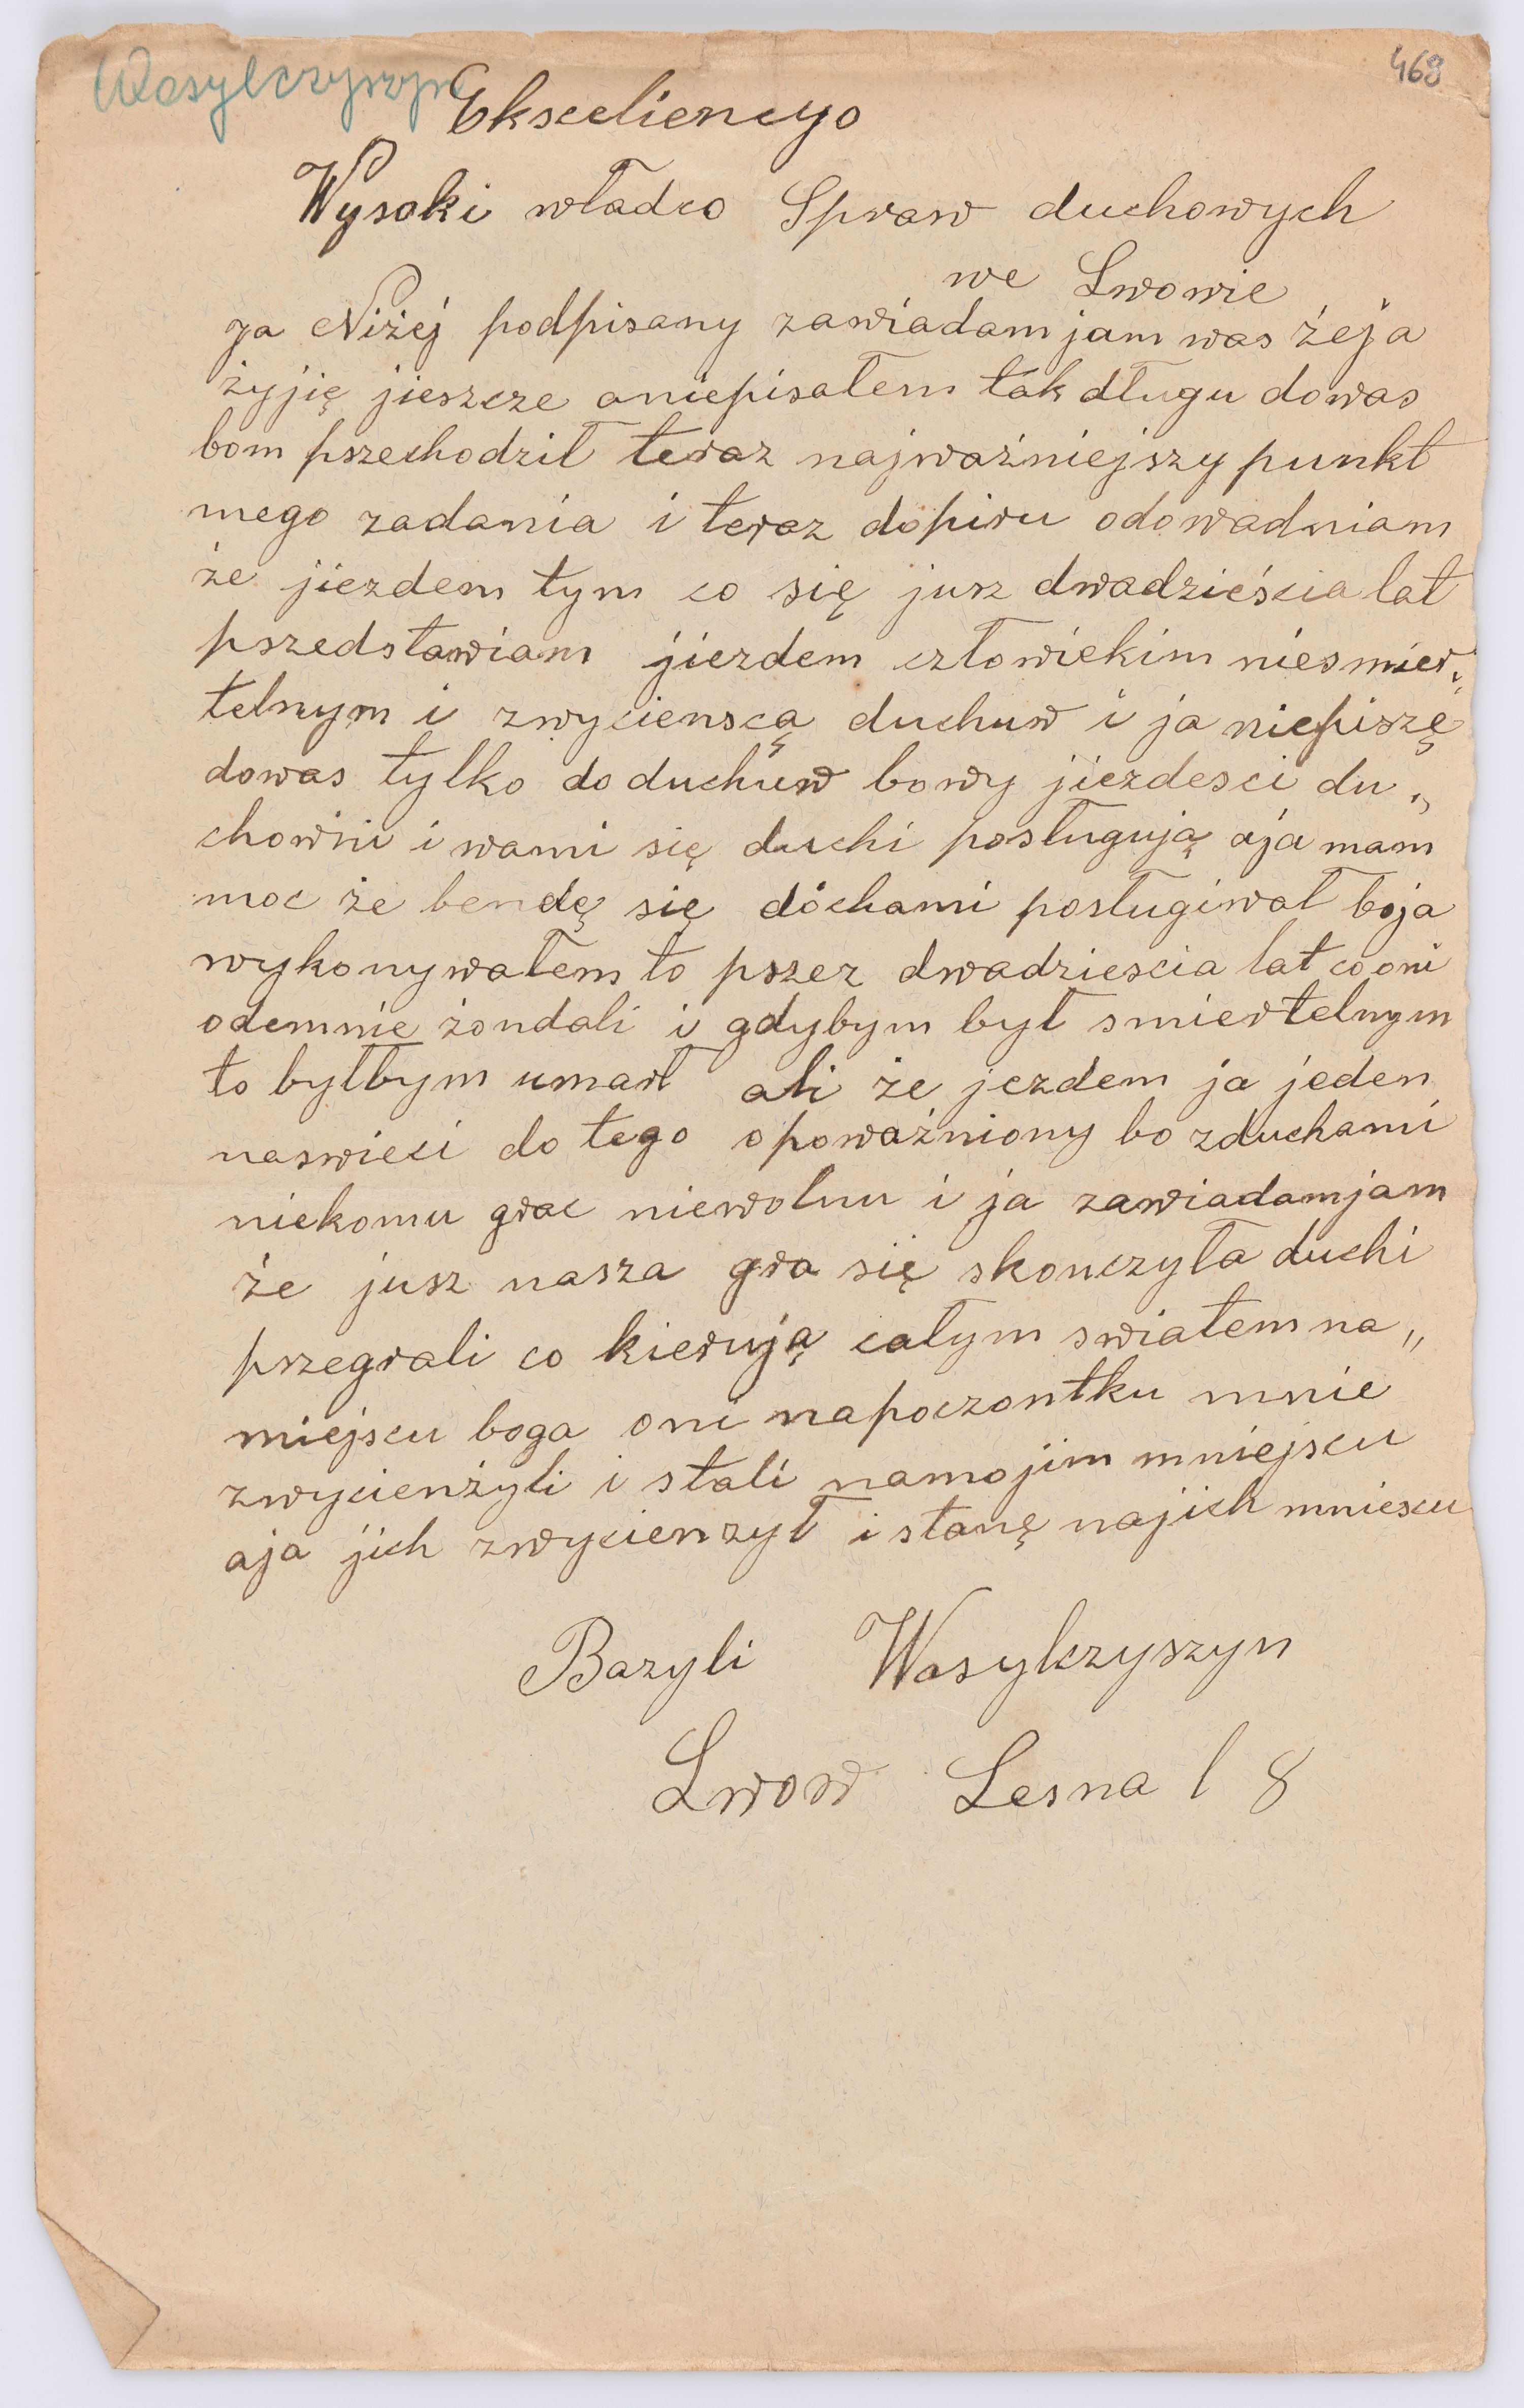 Wasylczyszyn
469
Eksceliencyo
Wysoki władco Spraw duchowych
we Lwowie
ja Niżej podpisany zawiadamjam was żeja
żyjię jieszcze aniepisałem tak długu dowas
bom pszechodził teraz najważniejszy punkt
mego zadania i teraz dopiru odowadniam
że jiezdem tym co się jusz dwadzieścia lat
pszedstawiam jiezdem człowiekim niesmier„
telnym i zwycienscą duchuw i ja niepiszę
dowas tylko do duchuw bowy jiezdesci du„
chowni i wami się duchi posługują aja mam
moc że bendę się dóchami posługiwał boja
wykonywałem to pszez dwadziescia lat cooni
odemnie żondali i gdybym był smiertelnym
to byłbym umarł ali że jezdem ja jeden
naswieci do tego opoważniony bo zduchami
niekomu grac niewolnu i ja zawiadamjam
że jusz nasza gra się skonczyła duchi
pszegrali co kierują całym swiatem na„
miejscu boga oni napoczontku mnie
zwycienżyli i stali namojim mniejscu
aja jich zwycienzył i stanę najich mniescu
Bazyli Wasylczyszyn
Lwow Lesna l 8